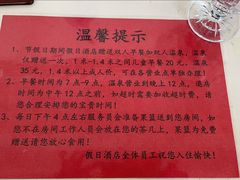 温馨提示
1、节假日期间假日酒店赠送双人早餐加双人温泉，温泉
仅赠送一次，1米-1.4米之间儿童早餐20元，温泉
35元，1.4米以上成人价，可在各营业点单独办理！
2、早餐时间为7点-9点，温泉营业到晚上12点，退房
时间为中午12点之前，如超时需要加收超时费，请
您合理安排您的宝贵时间！
3、每日下午4点左右服务员会准备果篮送到您房间，如
您不在房间工作人员会放在您的茶几上，果篮为免费
赠送请您放心食用！
假日酒店全体员工祝您入住愉快！